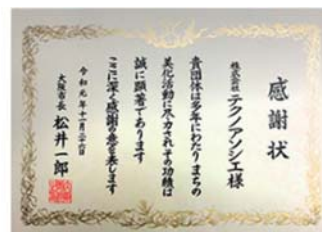 感謝状
株式会社
テクノアンシエ様
貴団体は多年にわたりまちの
美化活動に尽力されその功績は
誠に顕著であります
ここに深く感謝の意を表します
令和元年十一月二六日
大阪市長 松井一郎